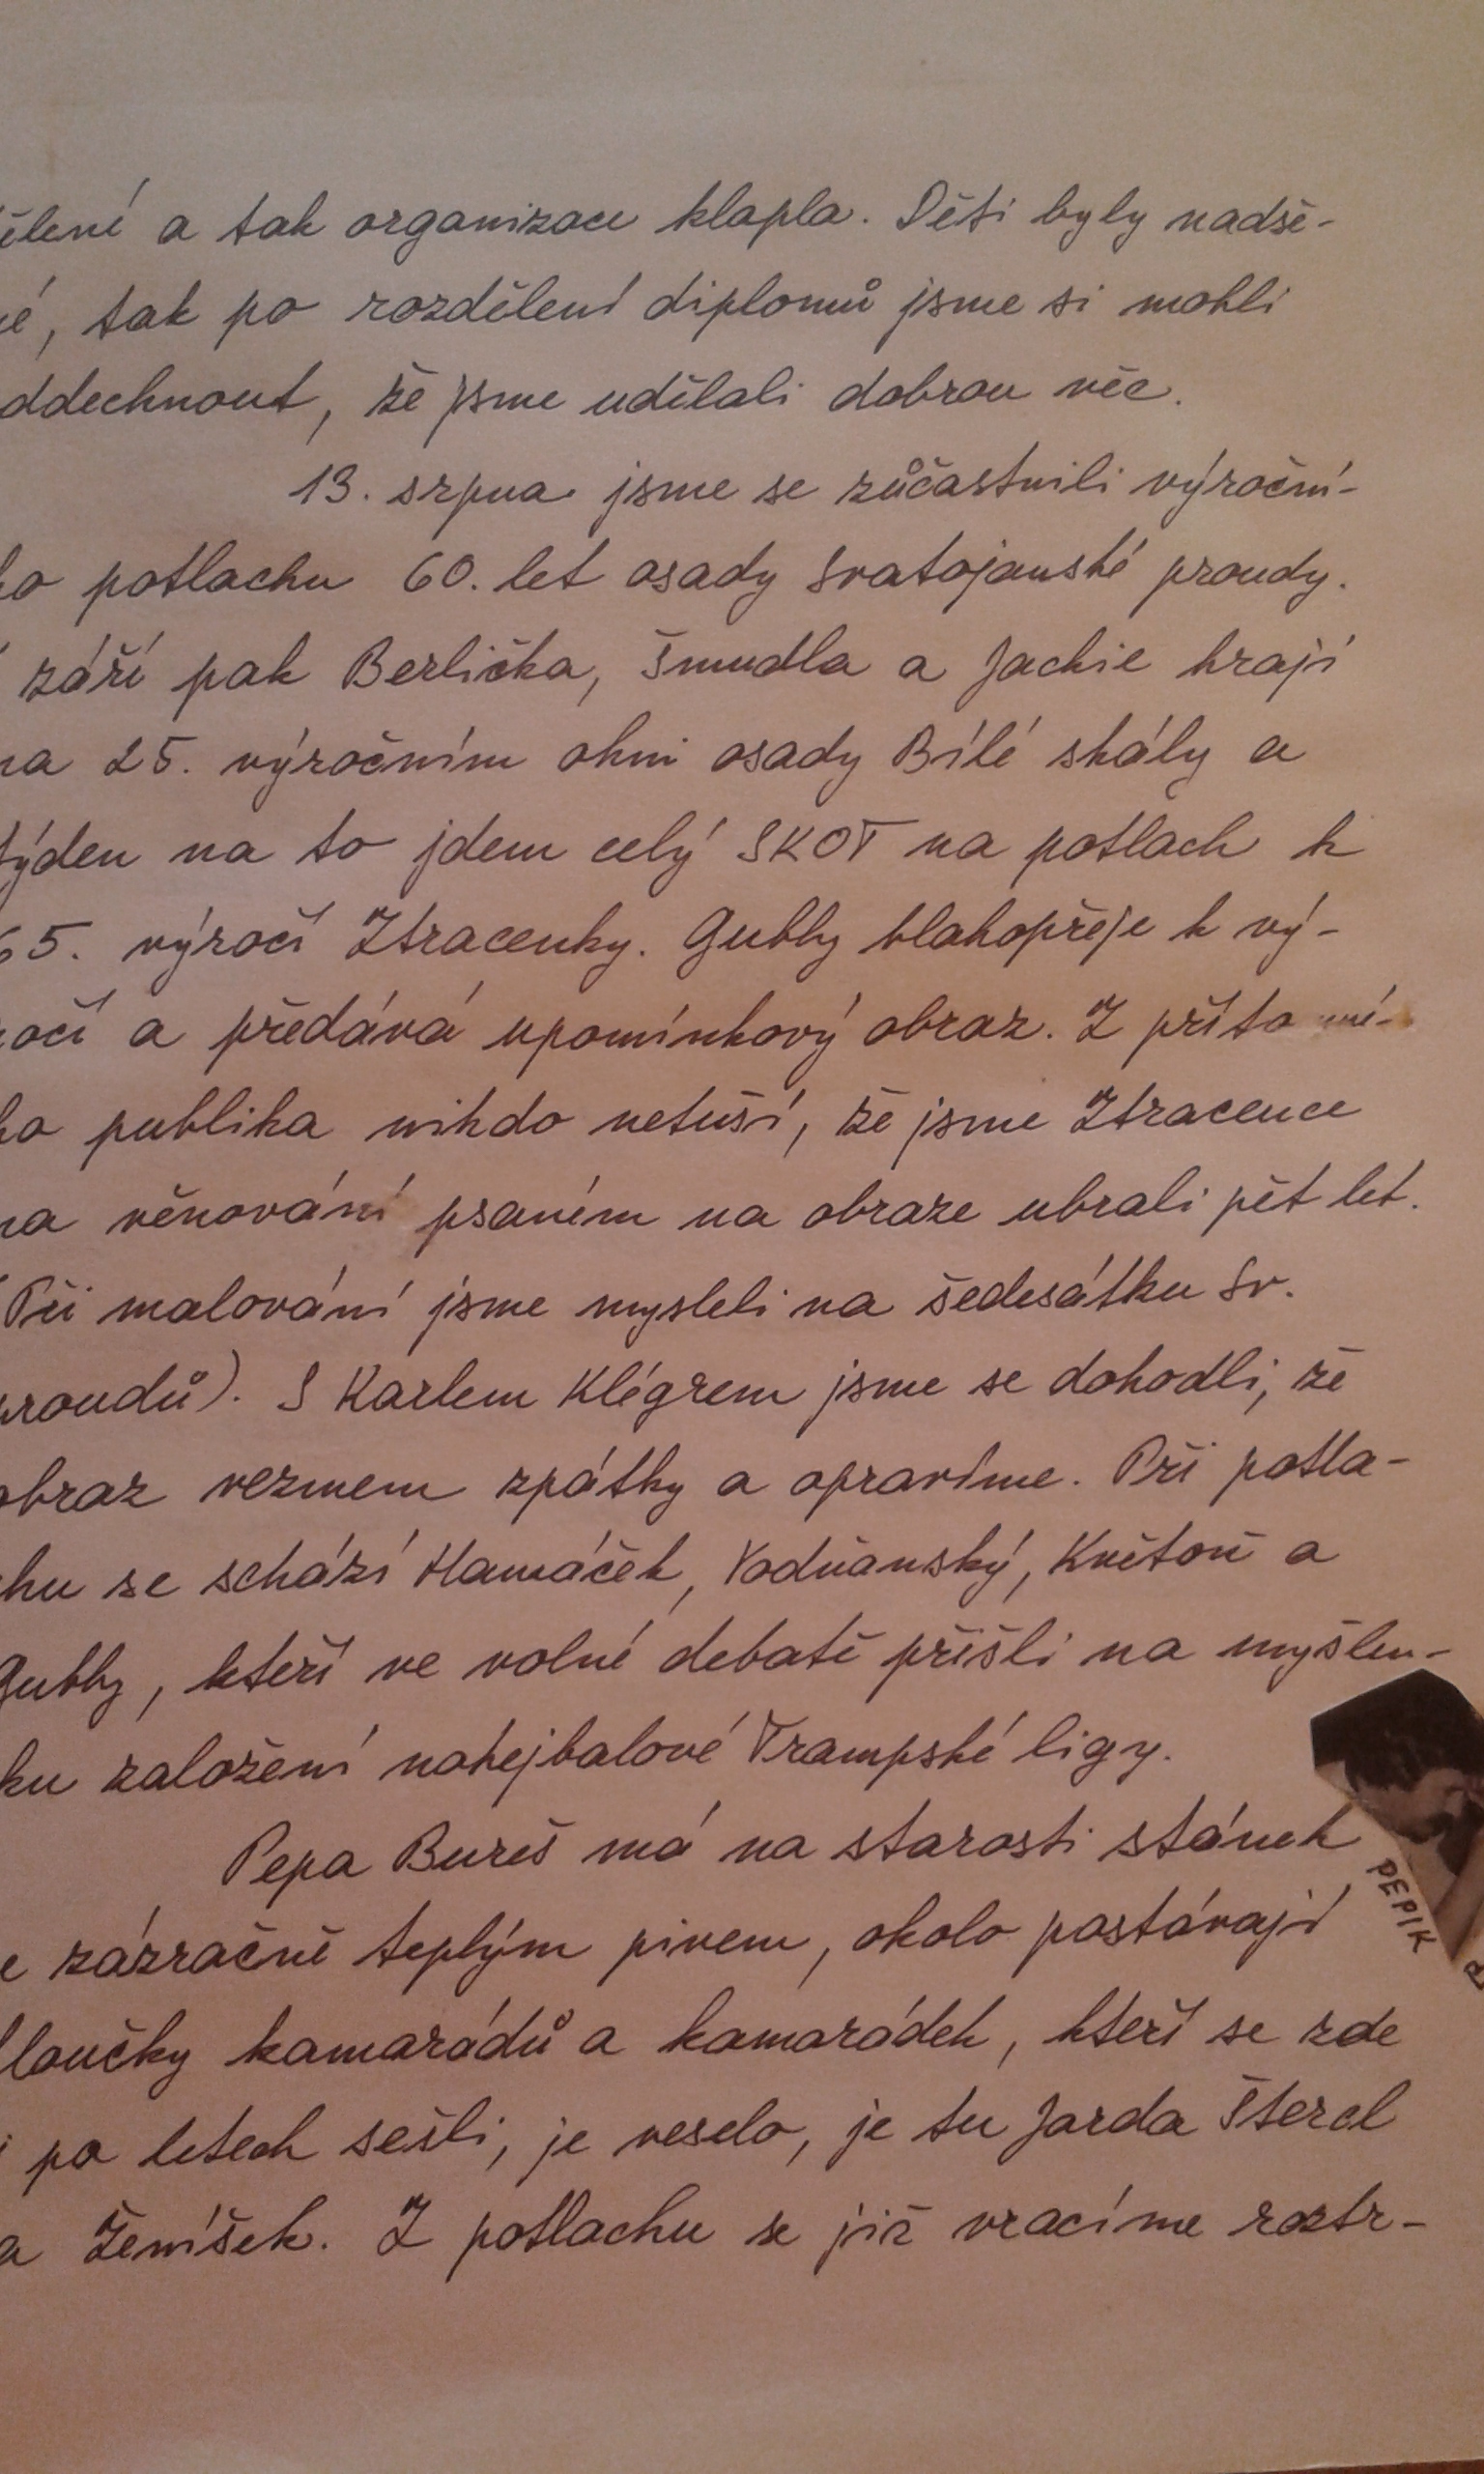 ělené a tak organizace klapla. Děti byly nadše-
é, tak po rozdělení diplomů jsme si mohli
ddechnout, že jsme udělali dobrou věc.
13. srpna jsme se zůčastnili výroční-
ho potlachu 60. let osady Svatojanské proudy.
září pak Berlička, Šmudla a Jackie hrají
na 25. výročním ohni osady Bílé skály a
týden na to jdem celý SKOT na potlach k
65. výročí Ztracenky. Gubby blahopřeje k vý-
očí a předává upomínkový obraz. Z přítomné-
ho publika nikdo netuší, že jsme Ztracence
na věnování psaném na obraze ubrali pět let.
Při malování jsme mysleli na šedesátku Sv.
proudů). S Karlem Klégrem jsme se dohodli, že
obraz vezmem zpátky a opravíme. Při potla-
chu se schází Hamáček, Vodňanský, Květoň a
Gubby, kteří ve volné debatě přišli na myšlen-
ku založení nohejbalové Trampské ligy.
Pepa Bureš má na starosti stánek
e zázračně teplým pivem, okolo postávají
loučky kamarádů a kamarádek, kteří se zde
po letech sešli, je veselo, je tu Jarda Štercl
a Ženíšek. Z potlachu se již vracíme roztr-
PEPIK